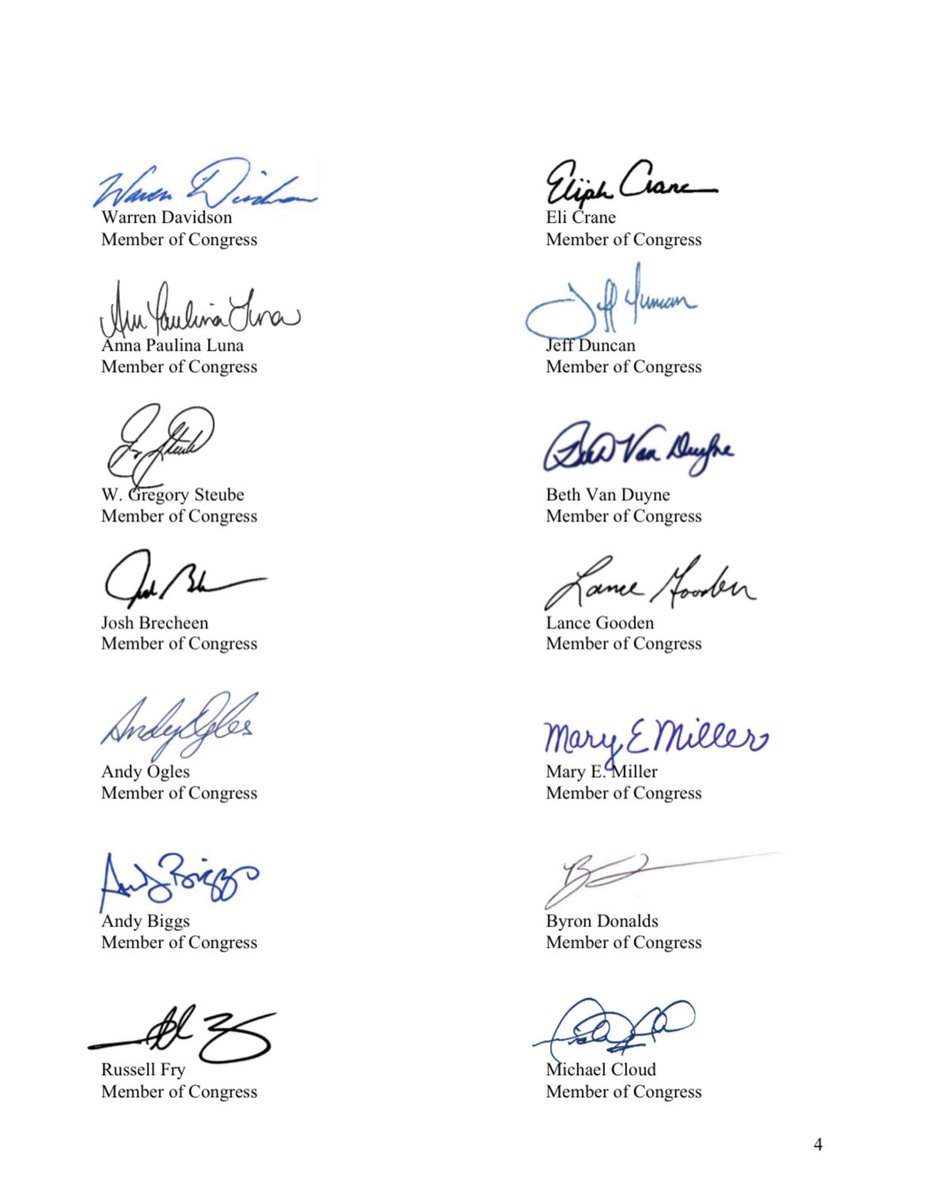 Warren Davidson
Warren Davidson
Member of Congress
Elijah Crane
Eli Crane
Member of Congress
Anna Paulina Luna
Anna Paulina Luna
Member of Congress
Jeff Duncan
Jeff Duncan
Member of Congress
W. Gregory Steube
Member of Congress
Beth Van Duyne
Beth Van Duyne
Member of Congress
Josh Brecheen
Member of Congress
Lance Gooden
Lance Gooden
Member of Congress
Andy Ogles
Andy Ogles
Member of Congress
Mary E Miller
Mary E. Miller
Member of Congress
Andy Biggs
Andy Biggs
Member of Congress
Byron Donalds
Member of Congress
Russell Fry
Member of Congress
Michael Cloud
Member of Congress
4